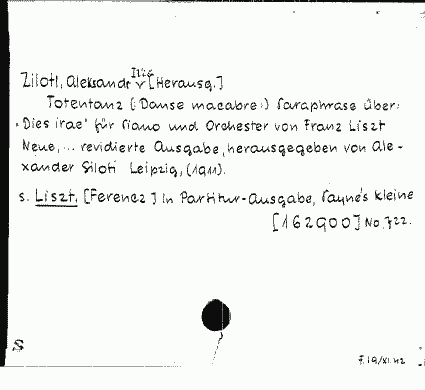 Ziloti, Aleksandr Ilič [Herausg.]
Totentanz (: Danse macabre :) Paraphrase über:
"Dies irae" für Piano und Orchester von Franz Liszt
Neue, ... revidierte Ausgabe, herausgegeben von Ale-
xander Siloti Leipzig, (1911).
s. Liszt, [Ferencz] In Partitur-Ausgabe, Payne's kleine
[162900] No. 722.
S
F. 19/XI. 42